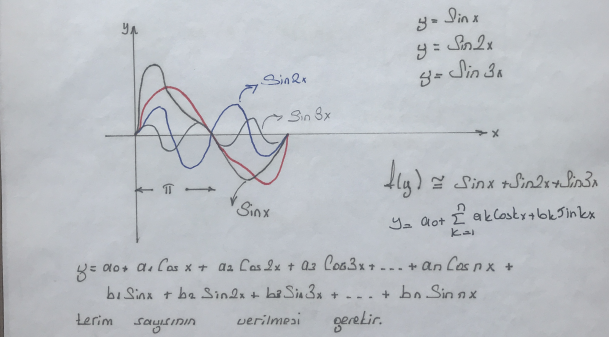 y = Sinx
y = Sin2x
y = Sin3x
y
Sin2x
Sin3x
x
π
Sinx
f(y) ≅ Sinx + Sin2x + Sin3x
y = a0 + n∑k=1 akCoskx + bkSinkx
y = a0 + a1 Cosx + a2 Cos2x + a3 Cos3x + ... + an Cosnx +
b1 Sinx + b2 Sin2x + b3 Sin3x + ... + bn Sinnx
terim sayısının verilmesi gerekir.